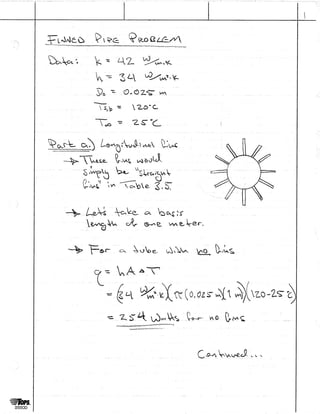 FINNED PIPE PROBLEM
Data: k = 42 W/m·K
h = 34 W/m²·K
D₀ = 0.025 m
= 120°C
T∞ = 25°C
Part a.) Longitudinal fins
→ These fins would
simply be "straight
fins" in Table 3.5.
→ Let's take a basis
length of one meter.
→ For a tube with no fins
q = hAΔT
= (34 W/m²·K)(π(0.025 m)(1 m))(120-25°C)
= 254 Watts for no fins
Continued...
TOPS
35500